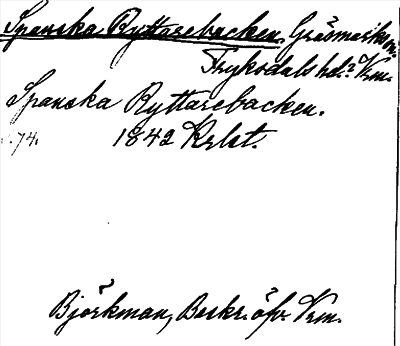 Spanska Ryttarebacken, Gräsmarks sn.
Fryksdals hd. Vrm.
Spanska Ryttarebacken.
s. 74. 1842 Krlst.
Björkman, Beskr. öfv. Vrm.